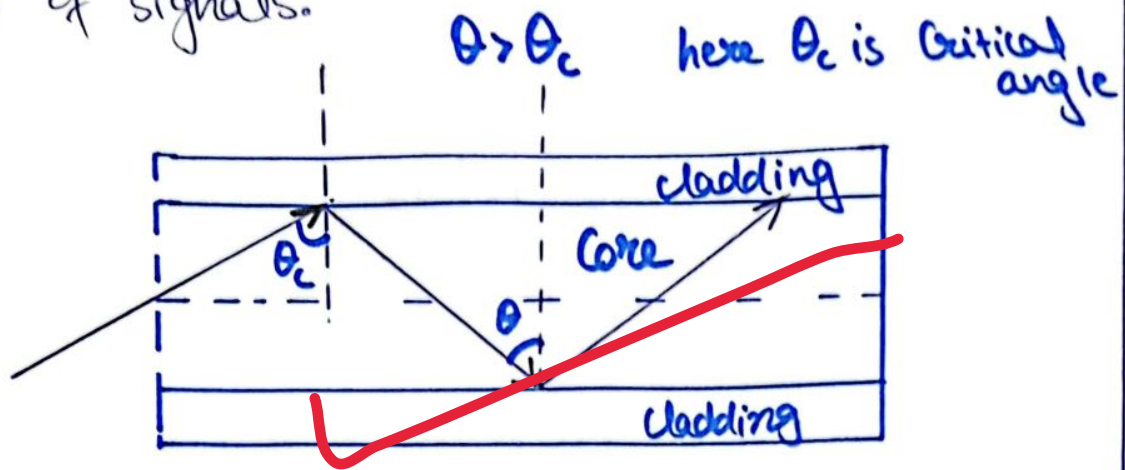 of signals.
θ > θc here θc is Critical
angle
cladding
Core
θc
θ
cladding